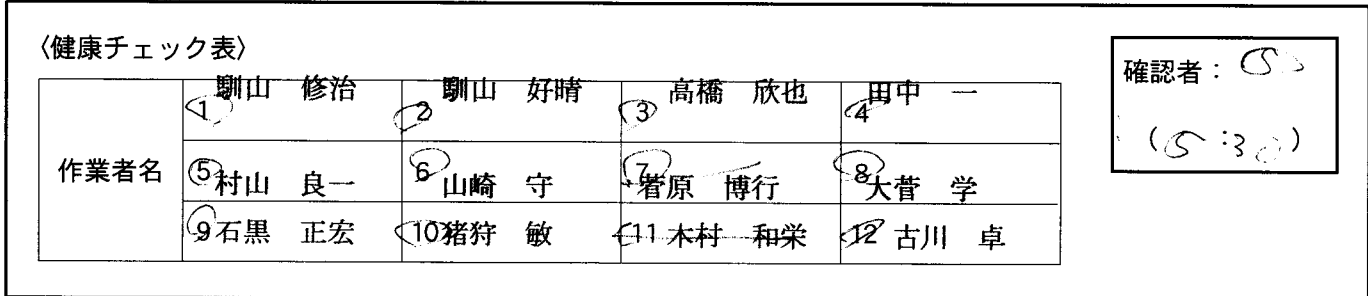 〈健康チェック表〉
確認者：
(5:30)
作業者名
1 馴山 修治 2 馴山 好晴 3 高橋 欣也 4 田中 一
5 村山 良一 6 山崎 守 7 菅原 博行 8 大菅 学
9 石黒 正宏 10 猪狩 敏 11 木村 和栄 12 古川 卓